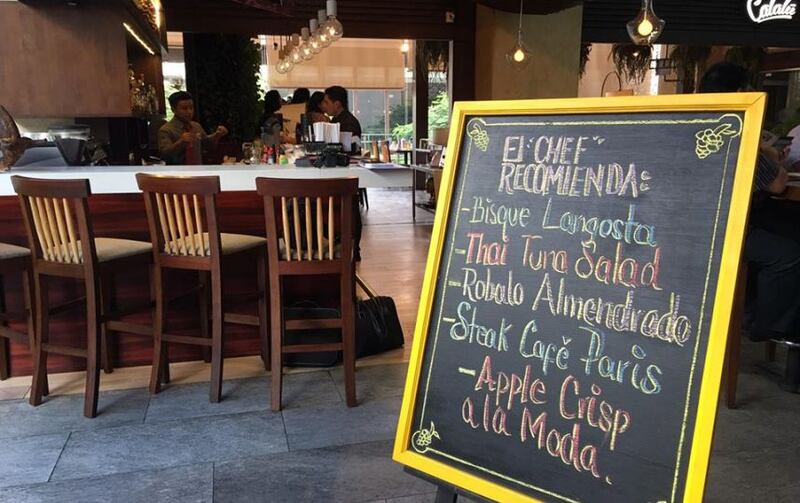 Catalá
El "CHEF"
RECOMIENDA:
-Bisque Langosta
-Thai Tuna Salad
-Robalo Almendrado
-Steak Café Paris
-Apple Crisp
a la Moda.